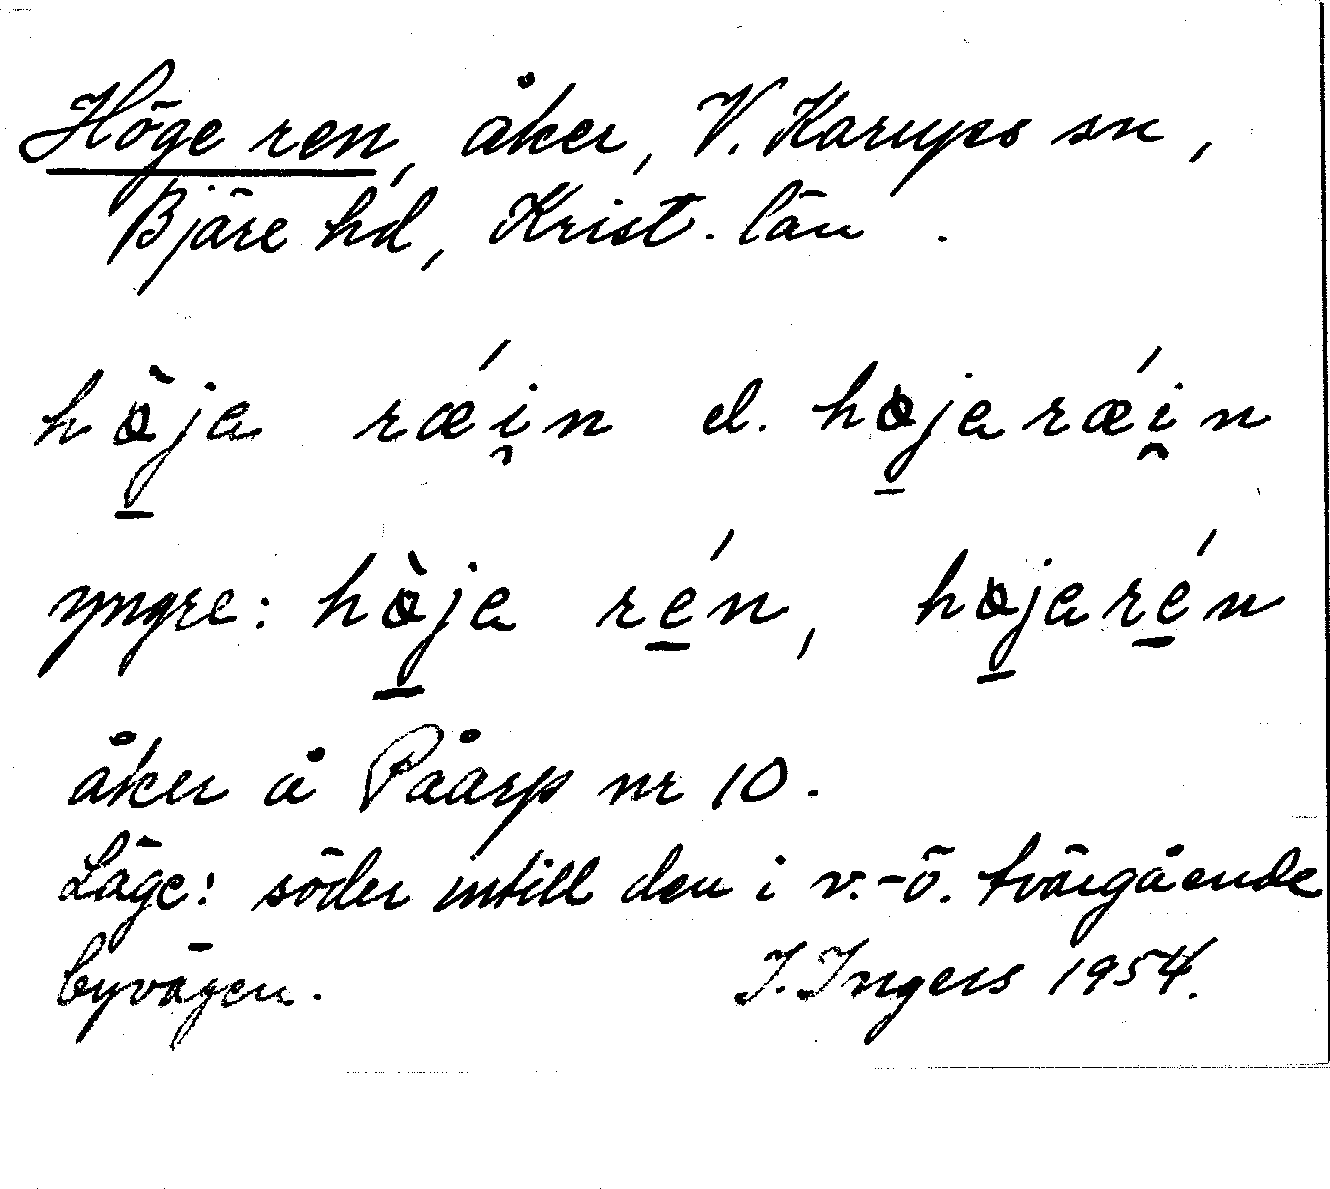 Höge ren, åker, V. Karups sn,
Bjäre hd, Krist. län.
hò̱ja rǽi̯n el. ho̱jarǽi̯n
yngre: hò̱ja ré̱n, ho̱jaré̱n
åker å Påarp nr 10.
Läge: söder intill den i v.-ö. tvärgående
byvägen. I. Ingers 1954.